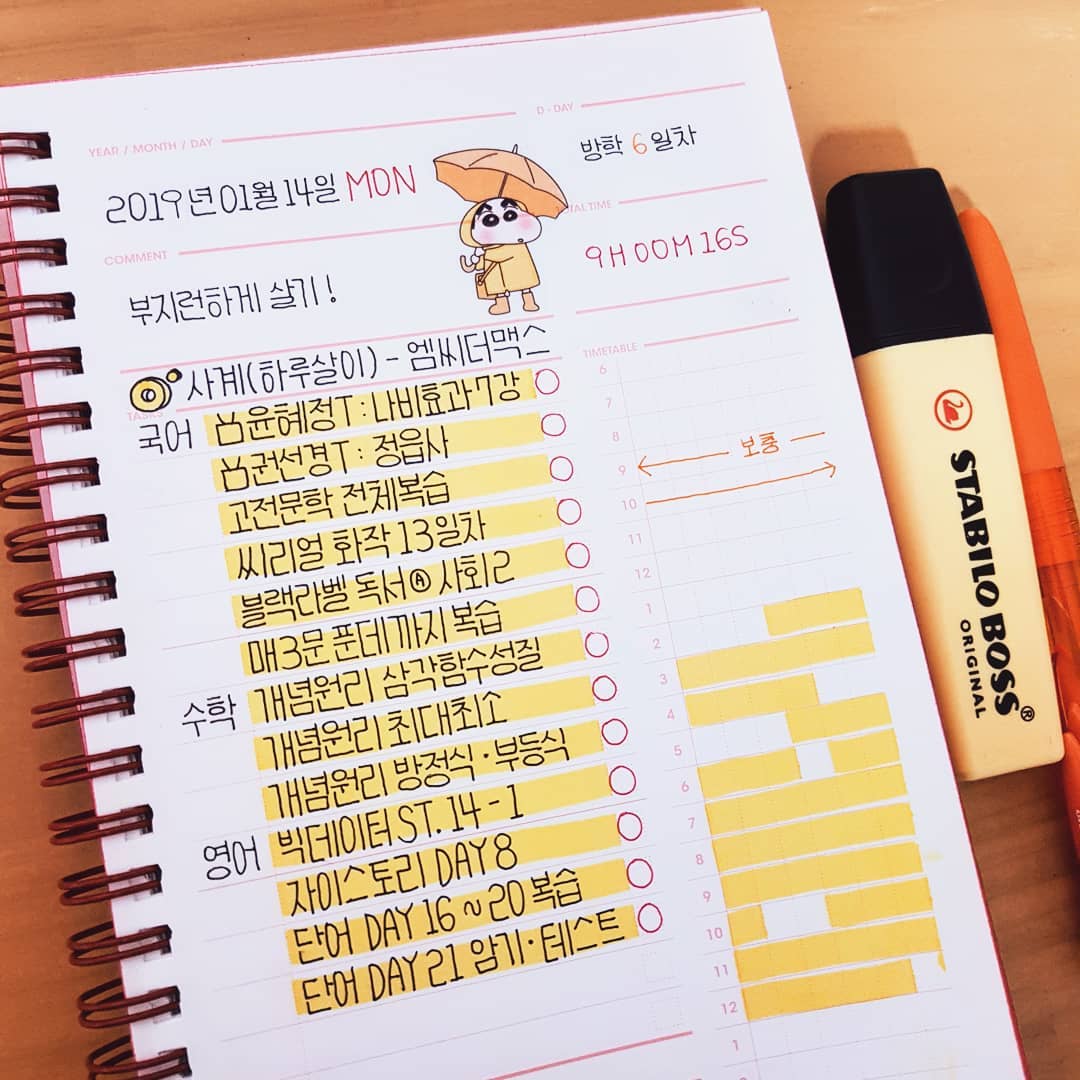 YEAR / MONTH / DAY
D - DAY
2019년 01월 14일 MON
방학 6일차
COMMENT
TOTAL TIME
부지런하게 살기!
9H 00M 16S
사계(하루살이) - 엠씨더맥스
TIMETABLE
TASKS
국어
윤혜정T : 나비효과 7강
권선경T : 정읍사
고전문학 전체복습
씨리얼 화작 13일차
블랙라벨 독서Ⓐ 사회2
매3문 푼데까지 복습
수학
개념원리 삼각함수성질
개념원리 최대최소
개념원리 방정식·부등식
영어
빅데이터 ST. 14 - 1
자이스토리 DAY 8
단어 DAY 16 ~ 20 복습
단어 DAY 21 암기·테스트
6
7
8
9
10
11
12
1
2
3
4
5
6
7
8
9
10
11
12
1
보충
STABILO BOSS®
ORIGINAL